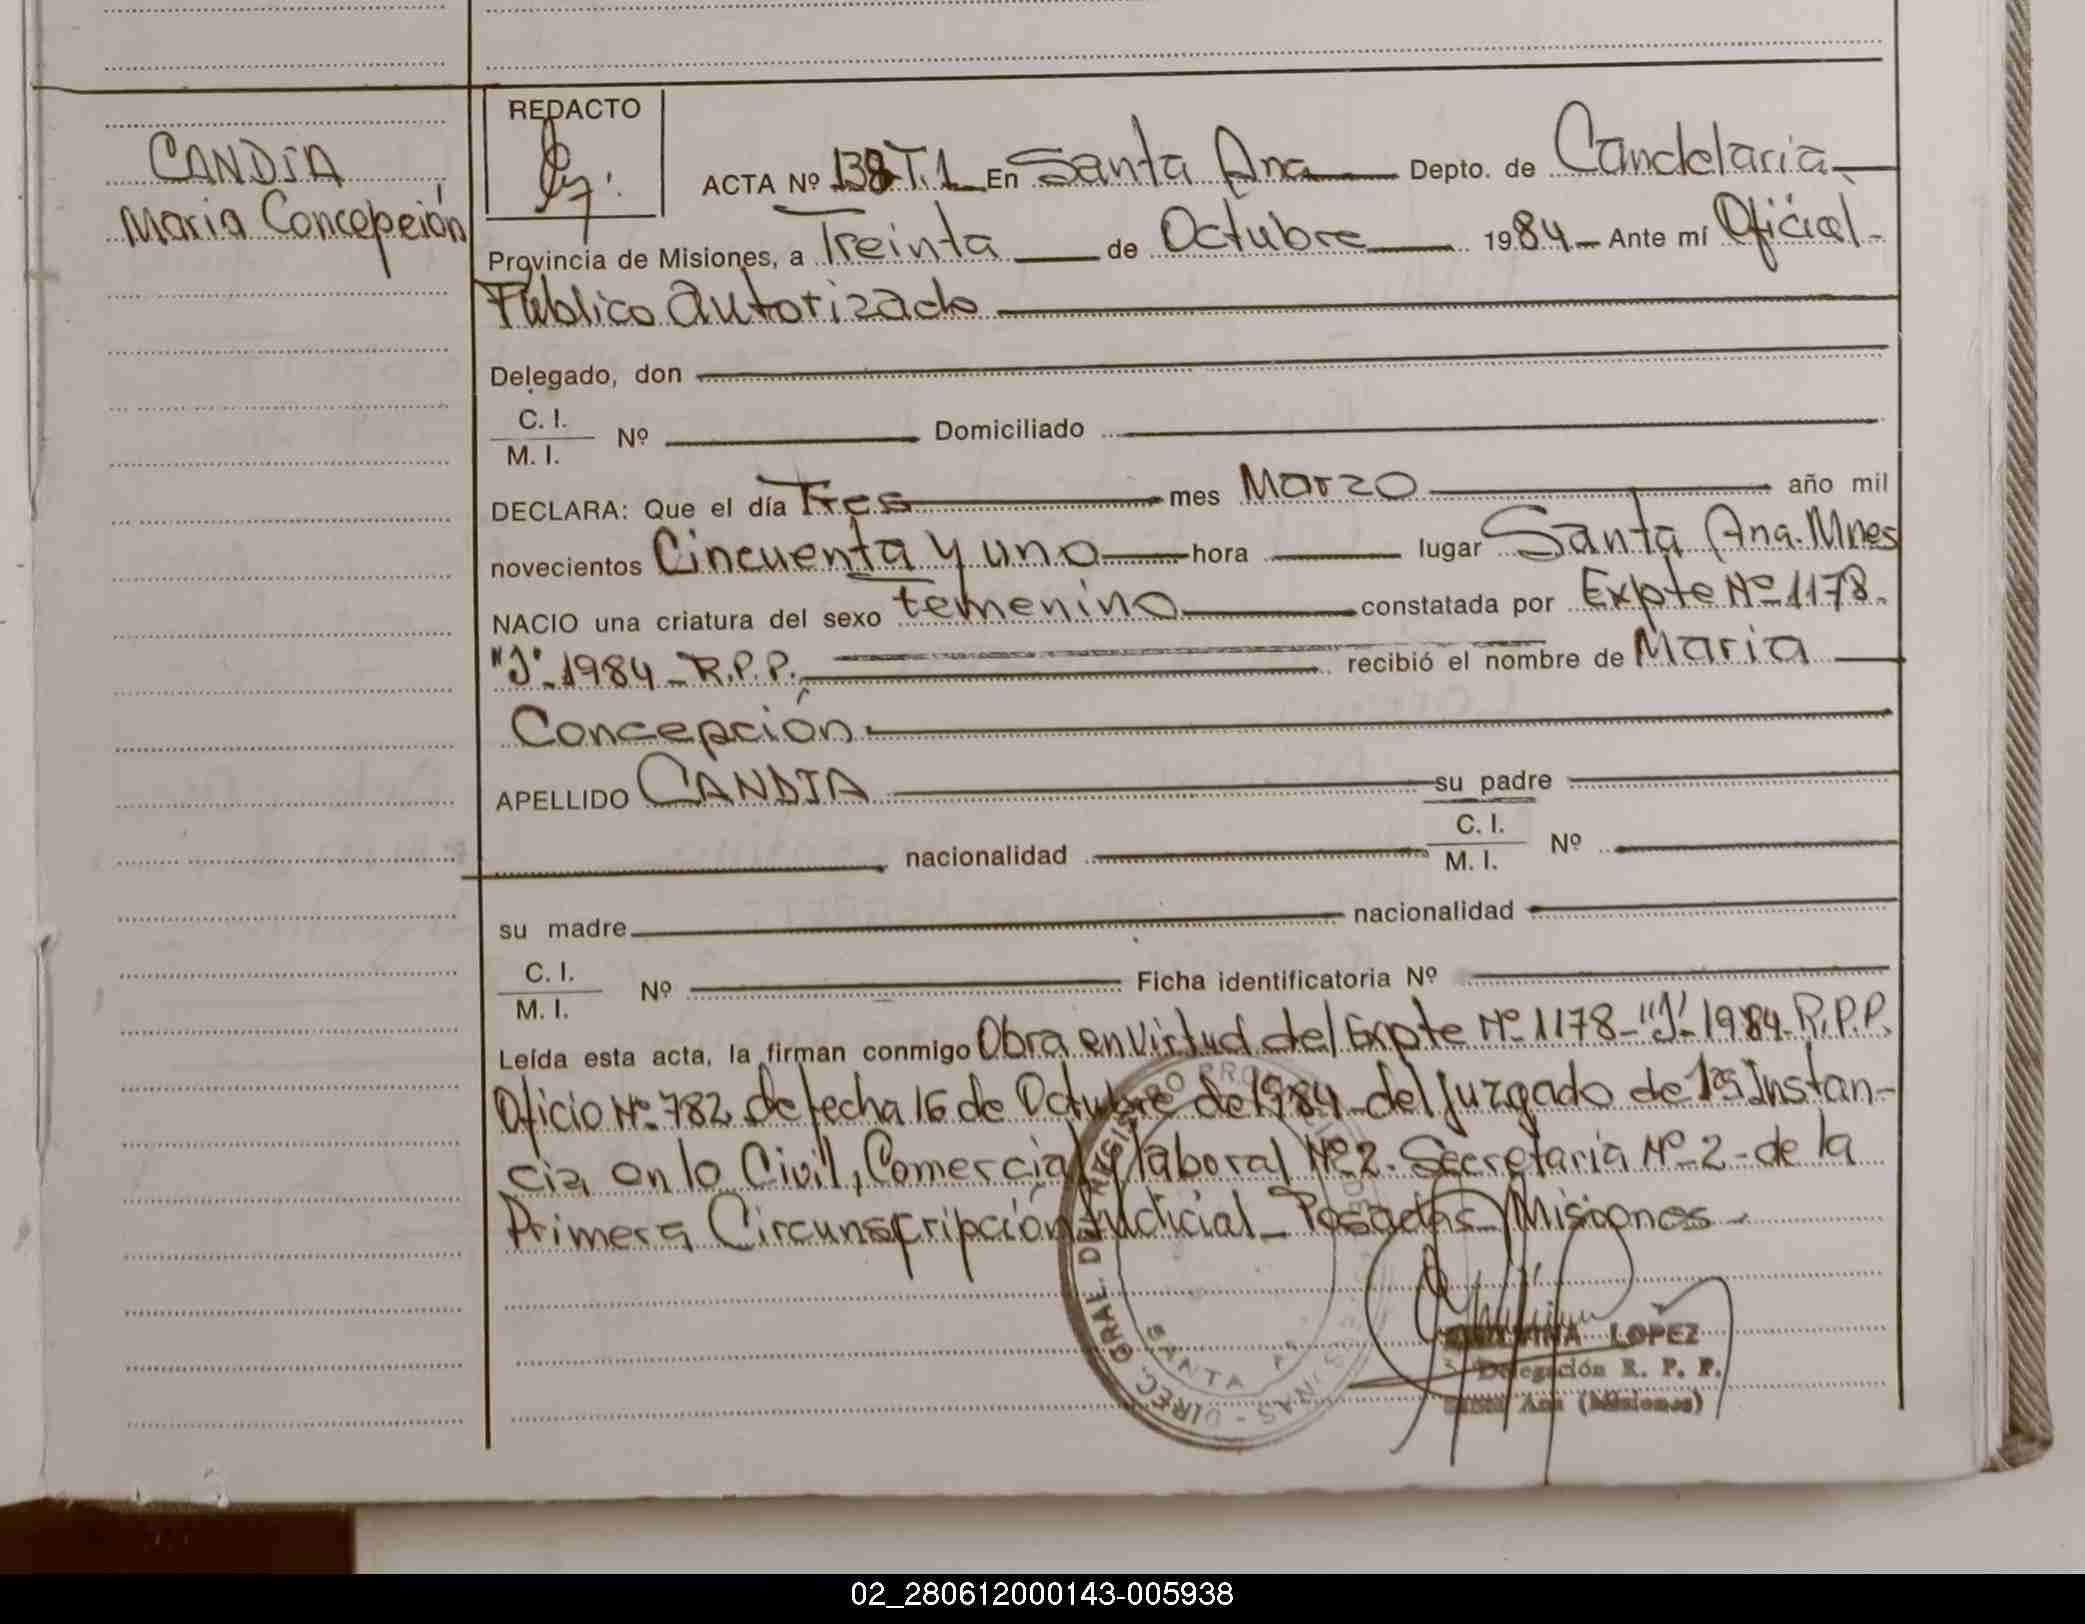 CANDIA
Maria Concepción
REDACTO
ACTA Nº 138 T.1 En Santa Ana Depto. de Candelaria
Provincia de Misiones, a Treinta de Octubre 1984 Ante mí Oficial
Público autorizado
Delegado, don
C. I.
M. I. Nº Domiciliado
DECLARA: Que el día Tres mes Marzo año mil
novecientos Cincuenta y uno hora lugar Santa Ana. Mnes
NACIO una criatura del sexo femenino constatada por Expte Nº 1178.
"J"-1984-R.P.P. recibió el nombre de Maria
Concepción
APELLIDO CANDIA su padre
nacionalidad C. I.
M. I. Nº
su madre nacionalidad
C. I.
M. I. Nº Ficha identificatoria Nº
Leída esta acta, la firman conmigo Obra en virtud del Expte Nº 1178-"J"-1984-R.P.P.
Oficio Nº 782 de fecha 16 de Octubre de 1984 del Juzgado de 1ra Instan-
cia en lo Civil, Comercial y laboral Nº 2. Secretaria Nº 2 - de la
Primera Circunscripción Judicial - Posadas Misiones
DIREC. GRAL. DEL REGISTRO PROV. DE LAS PERSONAS
SANTA ANA
LOPEZ
Delegación R. P. P.
Santa Ana (Misiones)
02_280612000143-005938